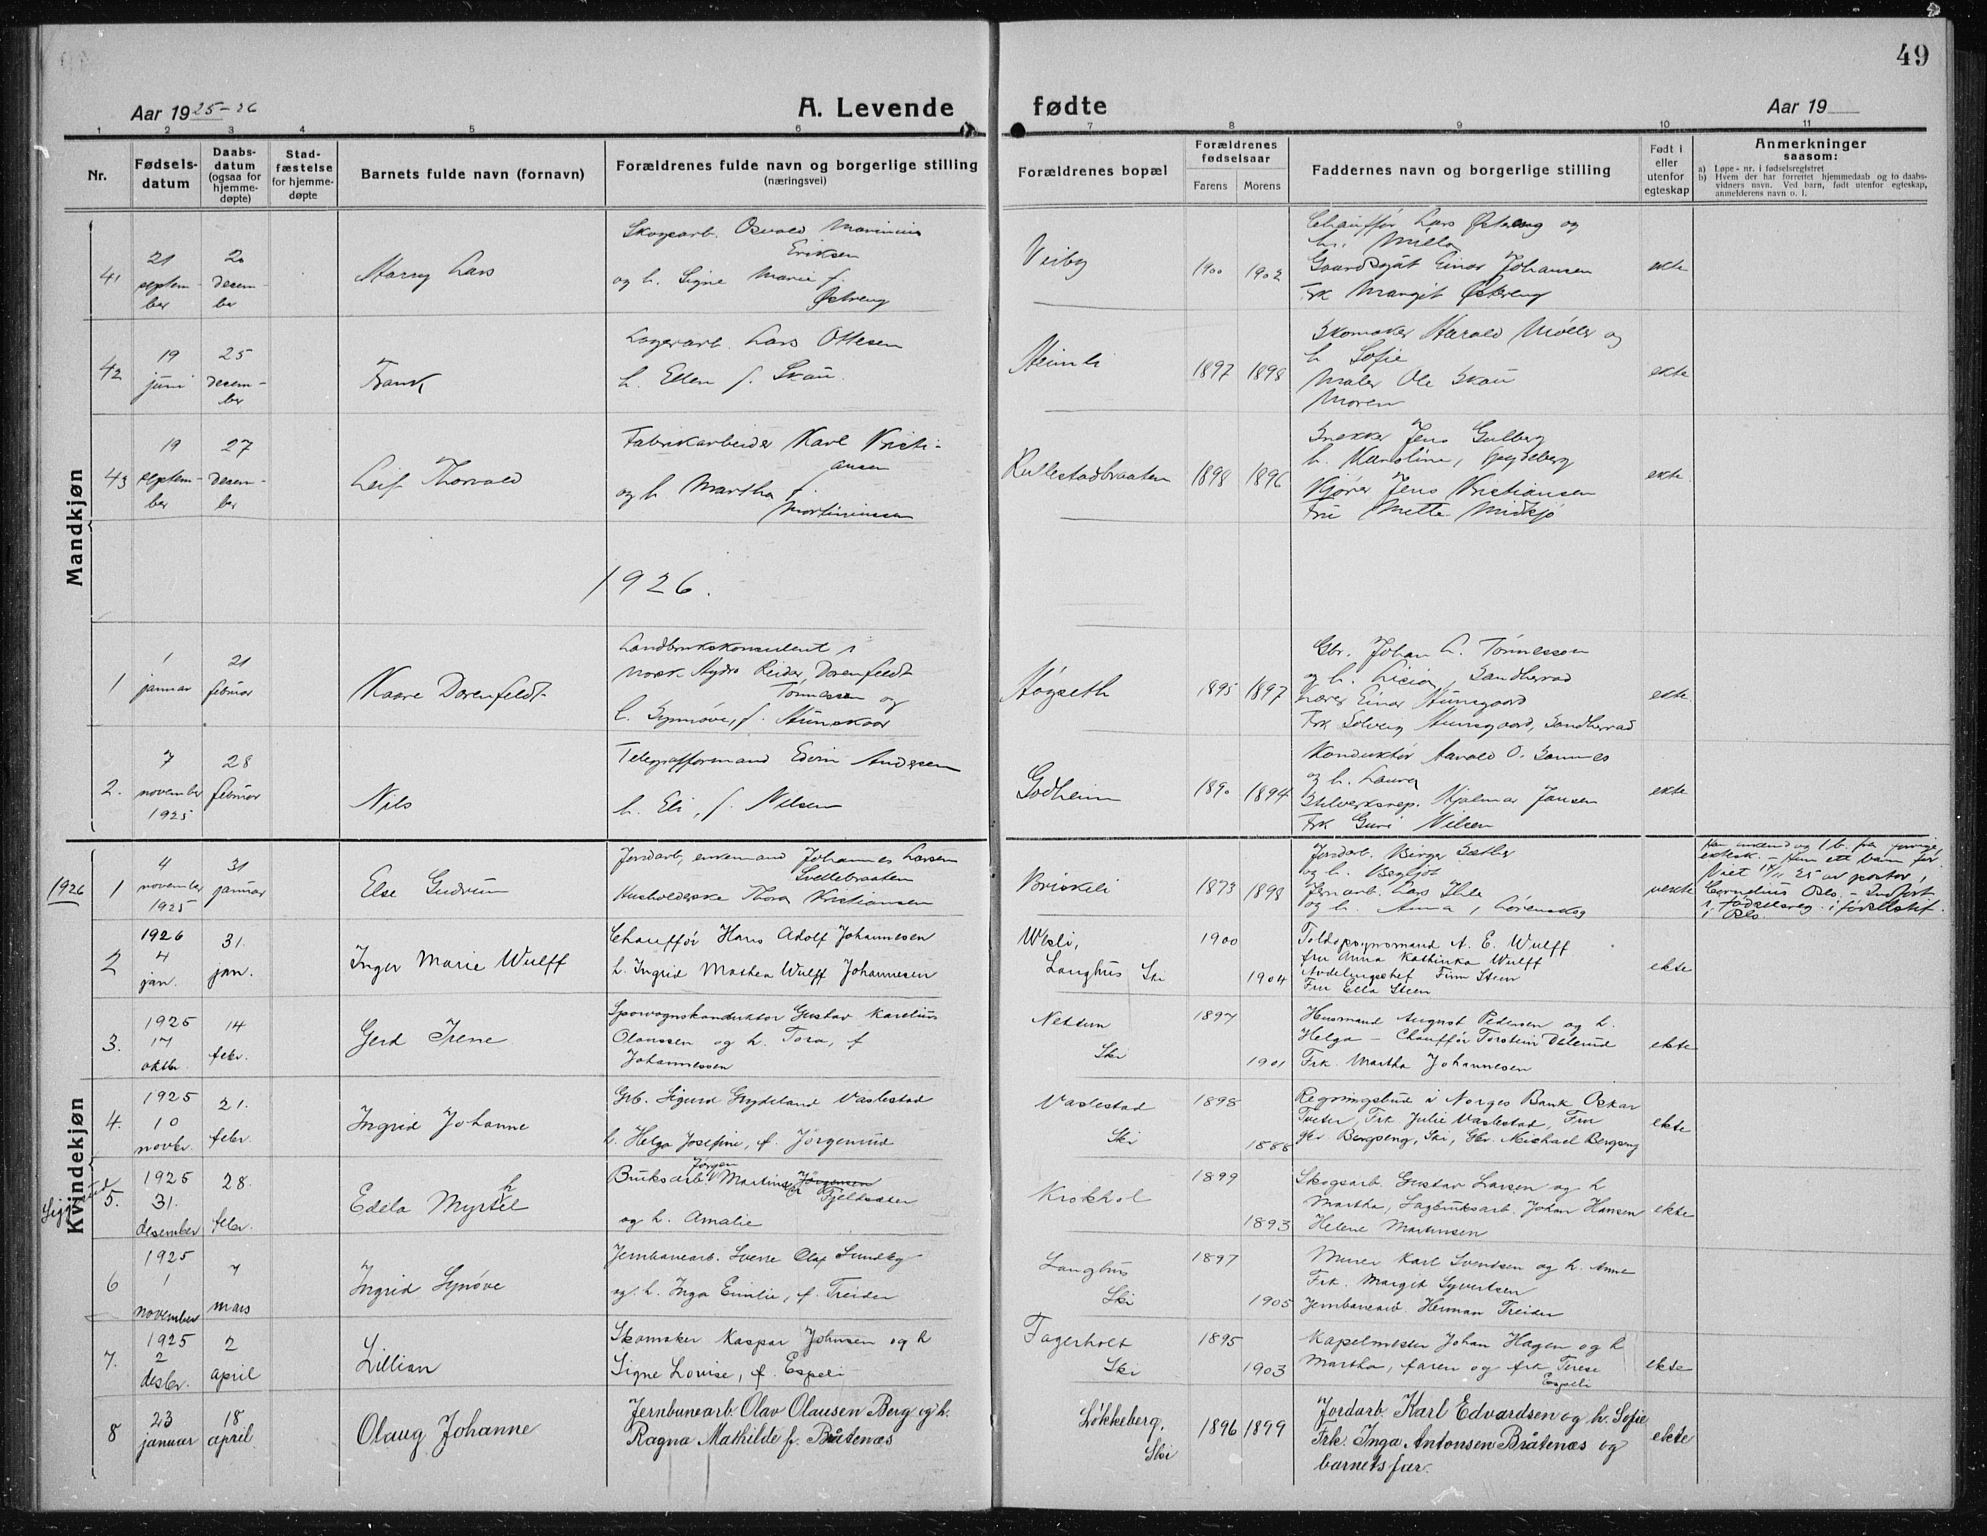 49
Aar 1925-26
A. Levende
fødte
Aar 19
1 2 3 4 5 6 7 8 9 10 11
Nr.
Fødsels-
datum
Daabs-
datum
(ogsaa for
hjemme-
døpte)
Stad-
fæstelse
for hjemme-
døpte
Barnets fulde navn (fornavn)
Forældrenes fulde navn og borgerlige stilling
(næringsvei)
Forældrenes bopæl
Forældrenes
fødselsaar
Farens
Morens
Faddernes navn og borgerlige stilling
Født i
eller
utenfor
egteskap
Anmerkninger
saasom:
a) Løpe-nr. i fødselsregistret
b) Hvem der har forrettet hjemmedaab og to daabs-
vidners navn. Ved barn, født utenfor egteskap,
anmelderens navn o. l.
Mandkjøn
41
21
septem-
ber
20
desem-
ber
Harry Lars
Skogsarb. Osvald Marinius
Eriksen
og h. Signe Marie f.
Østreng
Veiby
1900
1902
Chauffør Lars Østreng og
h. Milla
Gaardsgut Einar Johansen
Frk Margit Østreng
ekte
42
19
juni
25
desem-
ber
Frank
Lagerarb. Lars Ottesen
h. Ellen f. Skau
Heimli
1897
1898
Skomaker Harald Møller og
h. Sofie
Maler Ole Skau
Moren
ekte
43
19
septem-
ber
27
desem-
ber
Leif Thorvald
Fabrikarbeider Karl Kristi-
ansen
og h. Martha f.
Martiniussen
Rullestadbraaten
1898
1896
Snekker Jens Gulberg
h. Karoline,
Kjører Jens Kristiansen
Fru Mette
ekte
1926.
1
1
januar
21
februar
Kaare Dorenfeldt
Landbrukskonsulent i
Norsk Hydro Reidar Dorenfeldt
Tønnessen og
h. Synnøve, f. Hunskaar
Høgseth
1895
1897
Gbr. Johan L. Tønnessen
og h. Sandherad
Lærer Einar
Frk Solveig Sandherrad
ekte
2.
7
november
1925
28
februar
Nils
Telegrafformand Edvin Andersen
h. Eli, f. Nilsen
Godheim
1890
1894
Konduktør Harald O. Sannes
og h. Laura
Hjalmar Jansen
Frk Guri Nilsen
ekte
Kvindekjøn
1926
1
4
november
1925
31
januar
Else Gudrun
Jordarb, enkemand Johannes Larsen
Svellebraaten
Husholderske Thora Kristiansen
Briskeli
1873
1898
Jordarb. Birger Sætter
og h. Bergljot
Jernarb. Lars Ihle
og h. Anna, Lørenskog
uekte
2
1926
4
jan.
31.
jan.
Inger Marie Wulff
Chauffør Hans Adolf Johannesen
h. Ingrid Mathea Wulff Johannesen
Wisli,
Langhus Ski
1900
1904
Toldopsynsmand A. E. Wulff
fru Anna Kathinka Wulff
Avdelingschef Finn Steen
Fru Ella Steen
ekte
3.
1925
17
oktbr.
14
febr.
Gerd Irene
Sporvognskonduktør Gustav Karelius
Olaussen og h. Tora, f
Johannessen
Nettun
Ski
1897
1901
Husmand August Pedersen og h.
Helga – Chauffør Torstein Dalerud
Frk. Martha Johannesen
ekte
4.
1925
10
novbr.
21.
febr.
Ingrid Johanne
Grb. Sigurd Grydeland Vaslestad
h. Helga Josefine, f. Jørgenrud
Vaslestad
Ski
1898
1888
Regningsbud i Norges Bank Oskar
Tveter, Frk Julie Vaslestad, Fru
Bergseng, Ski, Gbr. Michael Bergseng
ekte
5.
1925
31.
desember
28.
febr.
Edela Myrtel
Bruksarb. Jørgen Martinus Jørgensen
Fjeldsæter
og h. Amalie
Krokhol
1899
1893
Skogsarb. Gustav Larsen og h
Martha, Sagbruksarb. Johan Hansen
Helene Martinsen
ekte
6
1925
1
november
7
mars
Ingrid Synøve
Jernbanearb. Sverre Olaf Sundby
og h. Inga Emilie, f. Treider
Langhus
Ski
1897
1905
Murer Karl Svendsen og h. Anne
Frk. Margit Syvertsen
Jernbanearb. Herman Treider
7.
1925
2
desbr.
2
april
Lillian
Skomaker Kaspar Johnsen og h
Signe Lovise, f. Espeli
Fagerholt
Ski
1895
1903
Kapelmester Johan Hagen og h
Martha, faren og frk Terese
Espeli
ekte
8
23
januar
18
april
Olaug Johanne
Jernbanearb. Olav Olausen Berg og h.
Ragna Mathilde f. Bråtenæs
Løkkeberg,
Ski
1896
1899
Jordarb. Karl Edvardsen og h. Sofie
Frk. Inga Antonsen Bråtenæs og
barnets far.
ekte